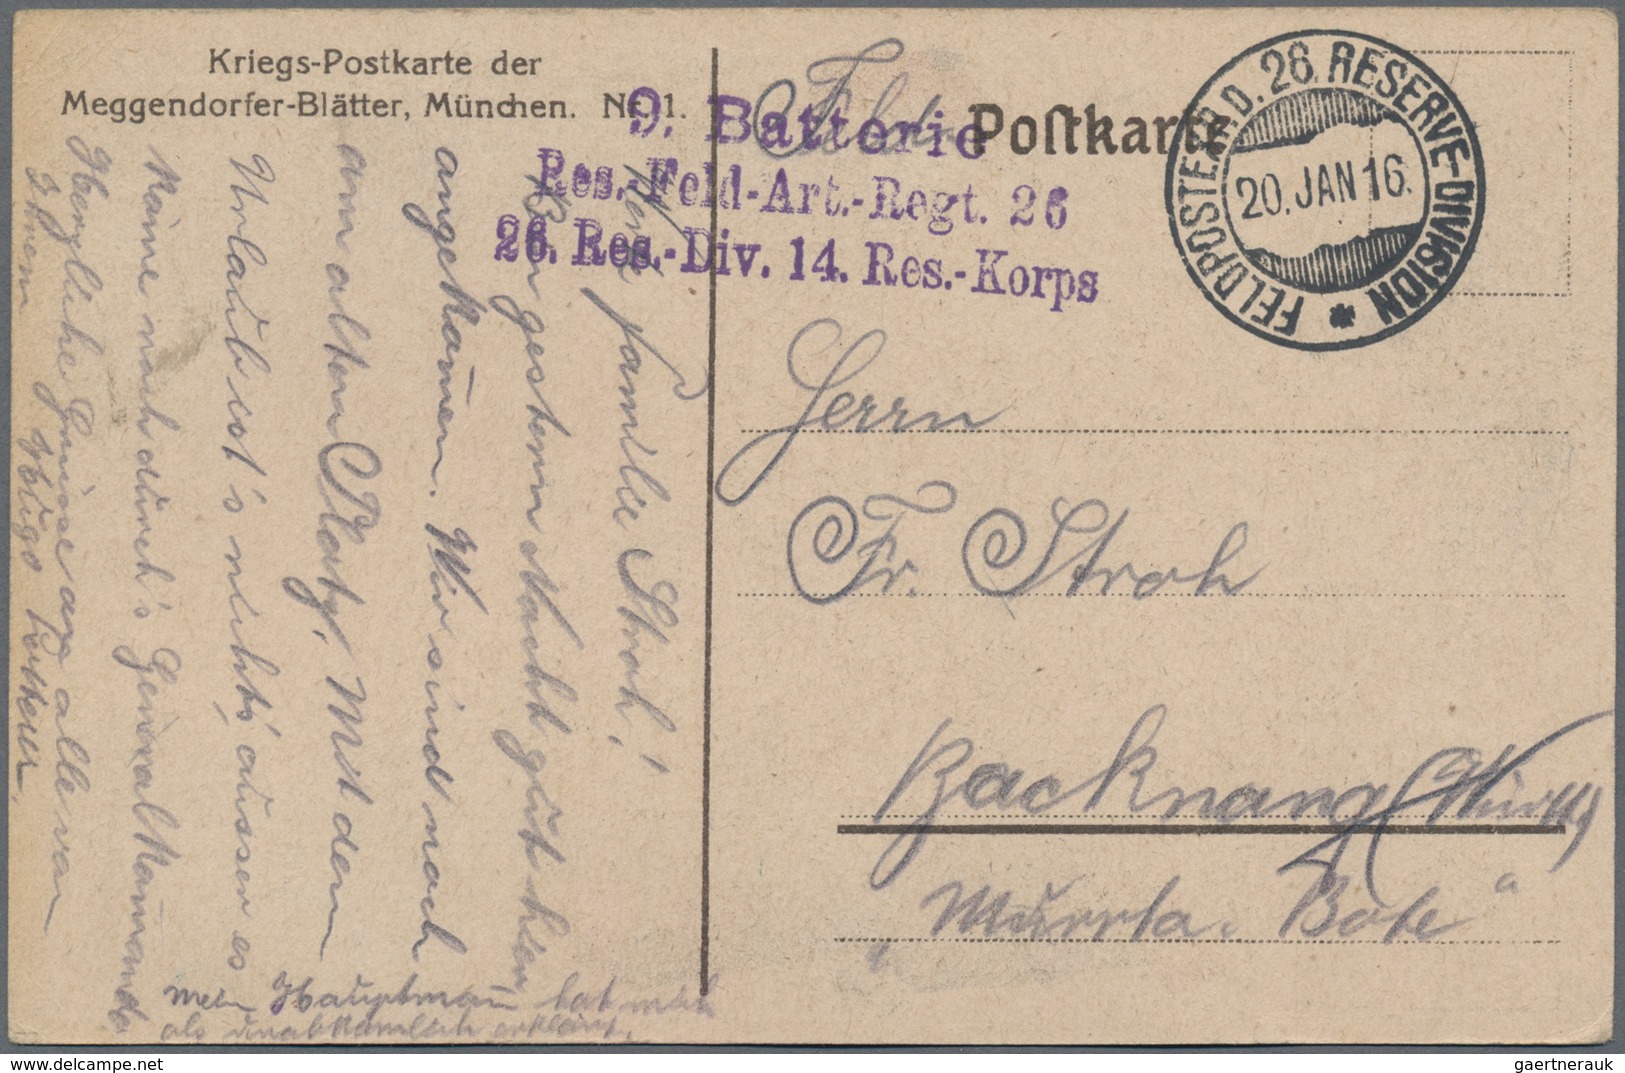 Kriegs-Postkarte der
Meggendorfer-Blätter, München. Nr. 1.
Feld
Postkarte
9. Batterie
Res.-Feld-Art.-Regt. 26
26. Res.-Div. 14. Res.-Korps
FELDPOSTEXP. D. 26. RESERVE-DIVISION *
20. JAN 16.
Herrn
Fr. Stroh
Backnang (Württ)
„Murrta. Bote“
familie Stroh!
gestern Nacht gut hier
angekommen. Wir sind noch
am alten Platz. Mit dem
Urlaub ist's nichts ausser es
käme noch durch's Generalkommando
Herzliche Grüsse an alle von
Ihrem Hugo
Mein Hauptmann hat mich
als unabkömlich erklärt.
delcampe.net
gaertnerauk